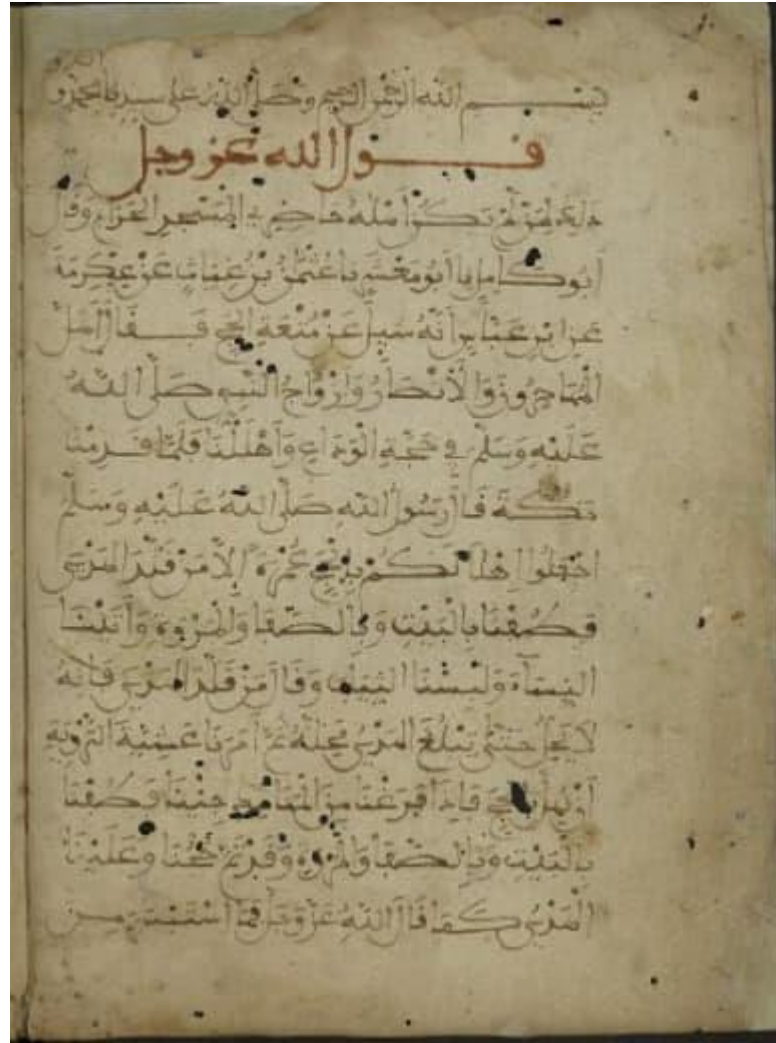 بسم الله الرحمن الرحيم وصلى الله على سيدنا محمد و
قول الله عز وجل
ذلك لمن لم يكن أهله حاضرى المسجد الحرام وقال
أبو كامل نا أبو معشر نا عثمن بن غياث عن عكرمة
عن ابن عباس أنه سيل عن متعة الحج فقال أهل
المهاجرون والأنصار وأزواج النبي صلى الله
عليه وسلم في حجة الوداع وأهللنا فلما قدمنا
مكة قال رسول الله صلى الله عليه وسلم
اجعلوا إهلالكم بالحج عمرة إلا من قلد الهدي
فطفنا بالبيت وبالصفا والمروة وأتينا
النساء ولبسنا الثياب وقال من قلد الهدي فإنه
لا يحل حتى يبلغ الهدي محله ثم أمرنا عشية التروية
أن نهل بالحج فإذا فرغنا من المناسك جئنا فطفنا
بالبيت وبالصفا والمروة وقد تم حجنا وعلينا
الهدي كما قال الله عز وجل فما استيسر من